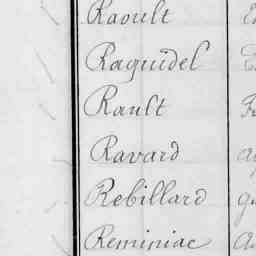 Raoult
Raguidel
Rault
Ravard
Rebillard
Reminiac